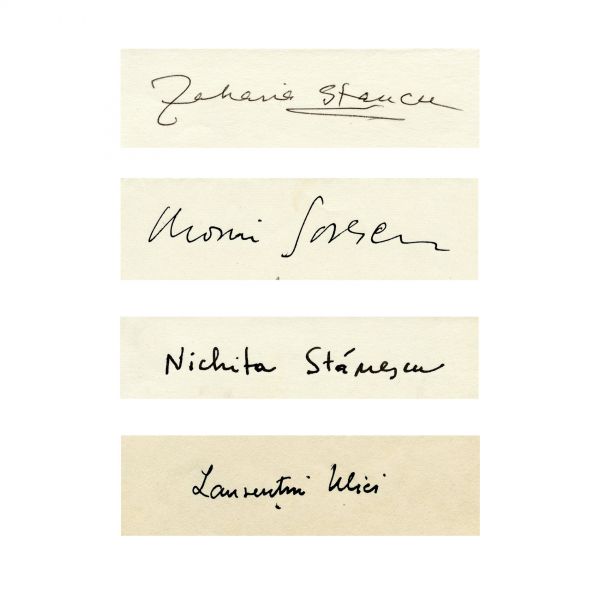 Zaharia Stancu
Marin Sorescu
Nichita Stănescu
Laurențiu Ulici